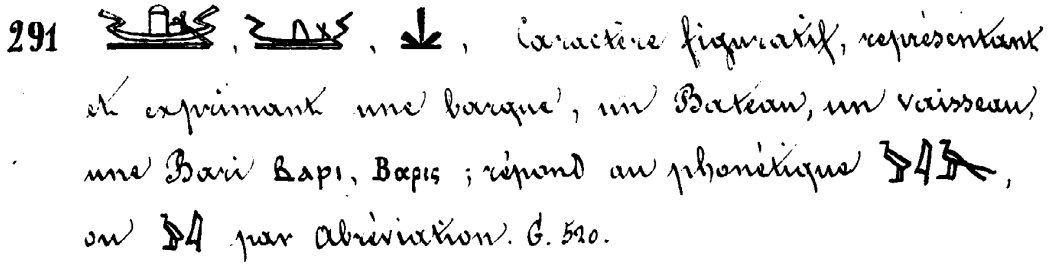 291 , , , Caractère figuratif, représentant
et exprimant une barque, un Bateau, un vaisseau,
une Bari ⲃⲁⲣⲓ, Βαρις ; répond au phonétique ,
ou par abréviation. G. 520.